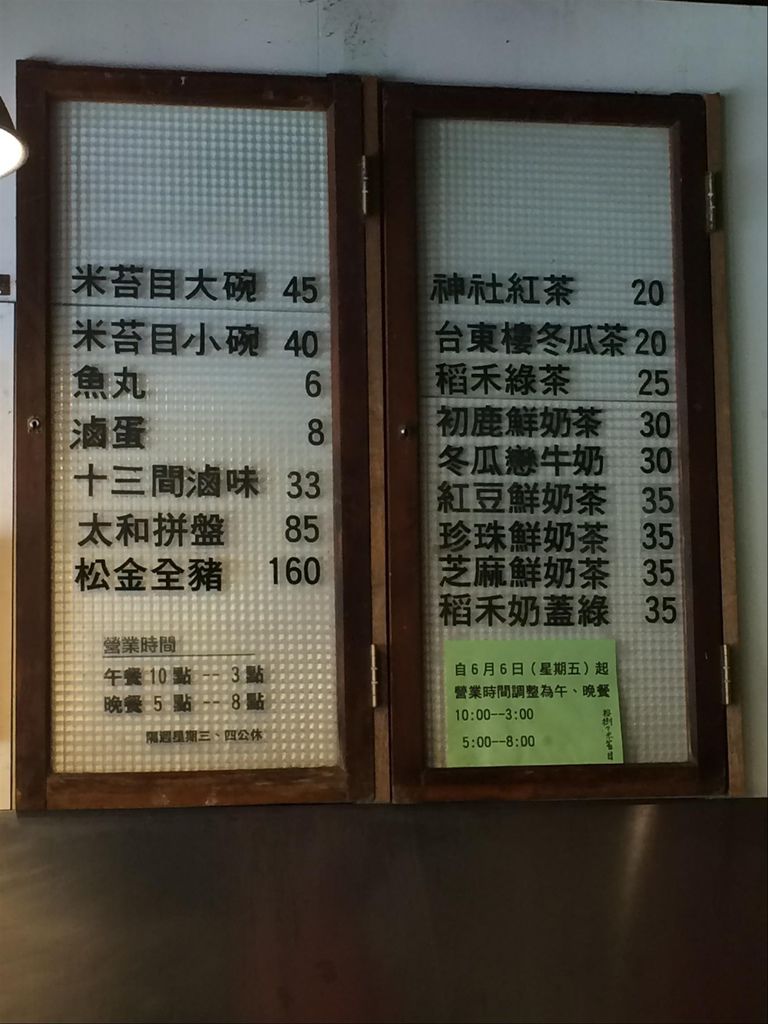 米苔目大碗 45
米苔目小碗 40
魚丸 6
滷蛋 8
十三間滷味 33
太和拼盤 85
松金全豬 160
營業時間
午餐 10 點 -- 3 點
晚餐 5 點 -- 8 點
隔週星期三、四公休
神社紅茶 20
台東樓冬瓜茶 20
稻禾綠茶 25
初鹿鮮奶茶 30
冬瓜戀牛奶 30
紅豆鮮奶茶 35
珍珠鮮奶茶 35
芝麻鮮奶茶 35
稻禾奶蓋綠 35
自6月6日(星期五)起
營業時間調整為午、晚餐
10:00--3:00
5:00--8:00
榕樹下米苔目